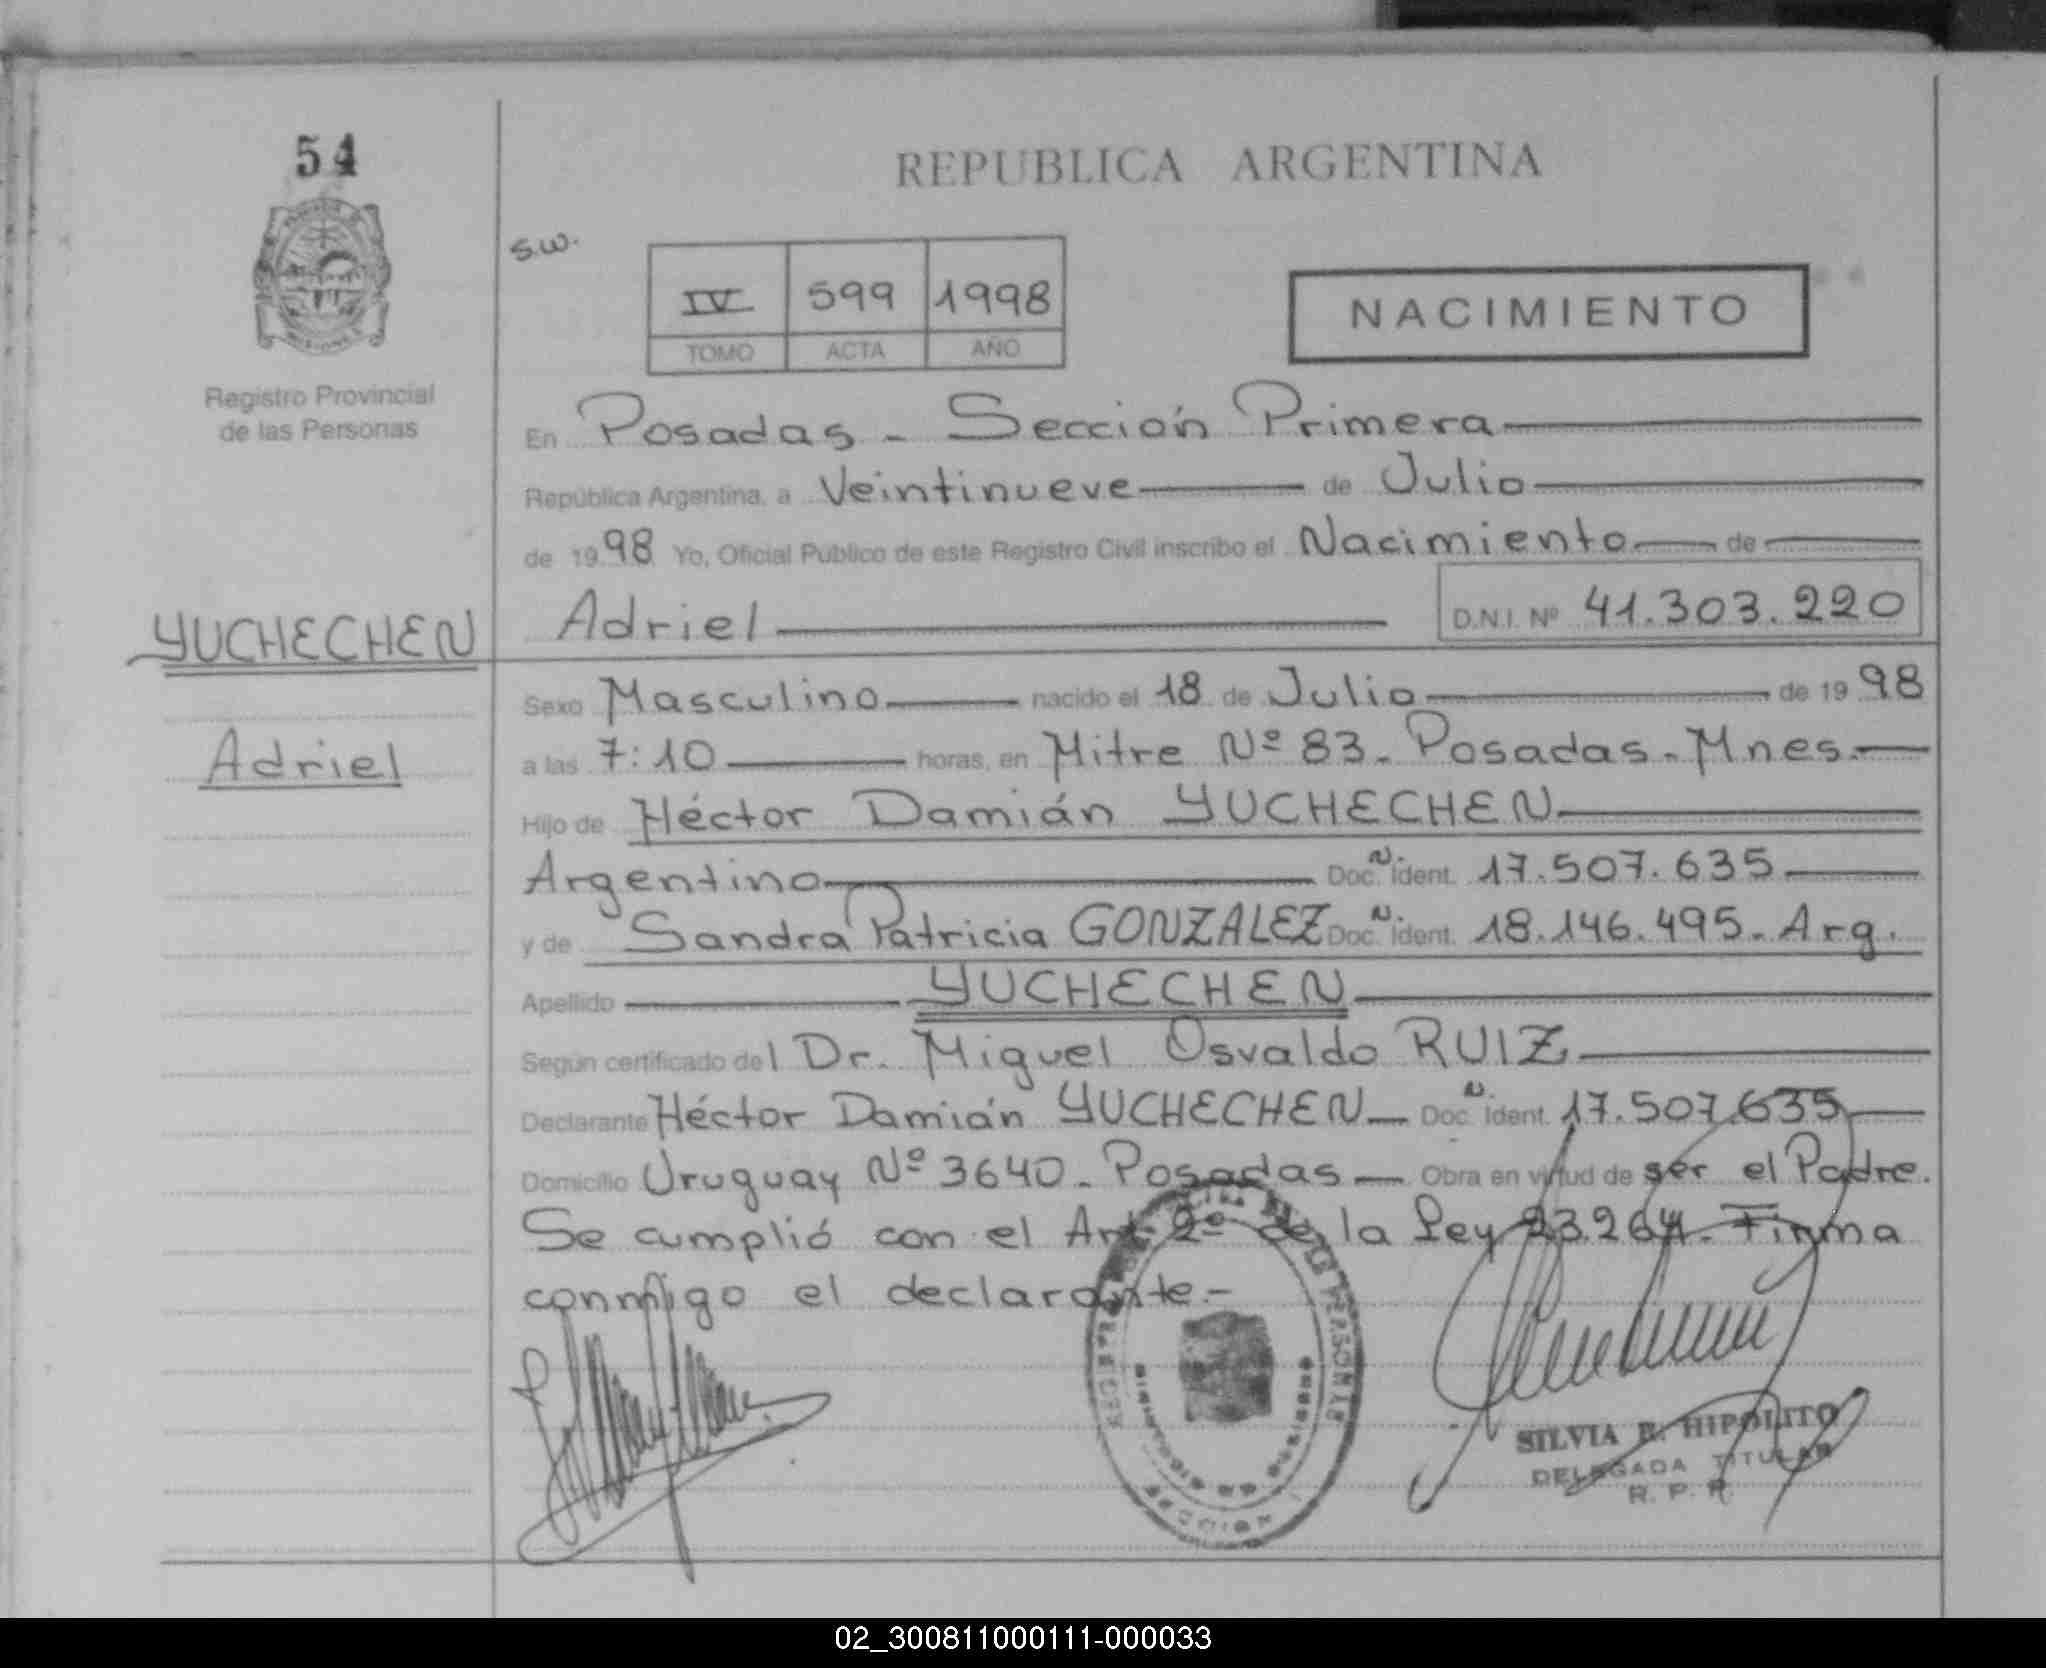 54
REPUBLICA ARGENTINA
s.w.
IV 599 1998
TOMO ACTA AÑO
NACIMIENTO
Registro Provincial
de las Personas
En Posadas - Sección Primera
República Argentina, a Veintinueve de Julio
de 1998 Yo, Oficial Público de este Registro Civil inscribo el Nacimiento de
Adriel D.N.I. Nº 41.303.220
YUCHECHEN
Adriel
Sexo Masculino nacido el 18 de Julio de 1998
a las 7:10 horas, en Mitre Nº 83. Posadas. Mnes.
Hijo de Héctor Damián YUCHECHEN
Argentino Doc. N. Ident. 17.507.635
y de Sandra Patricia GONZALEZ Doc. N. Ident. 18.146.495. Arg.
Apellido YUCHECHEN
Según certificado del Dr. Miguel Osvaldo RUIZ
Declarante Héctor Damián YUCHECHEN Doc. N. Ident. 17.507.635
Domicilio Uruguay Nº 3640. Posadas Obra en virtud de ser el Padre.
Se cumplió con el Art. 2º de la Ley 23.264. Firma
conmigo el declarante.-
SECCION
SILVIA R. HIPOLITO
DELEGADA TITULAR
R. P. P.
02_300811000111-000033